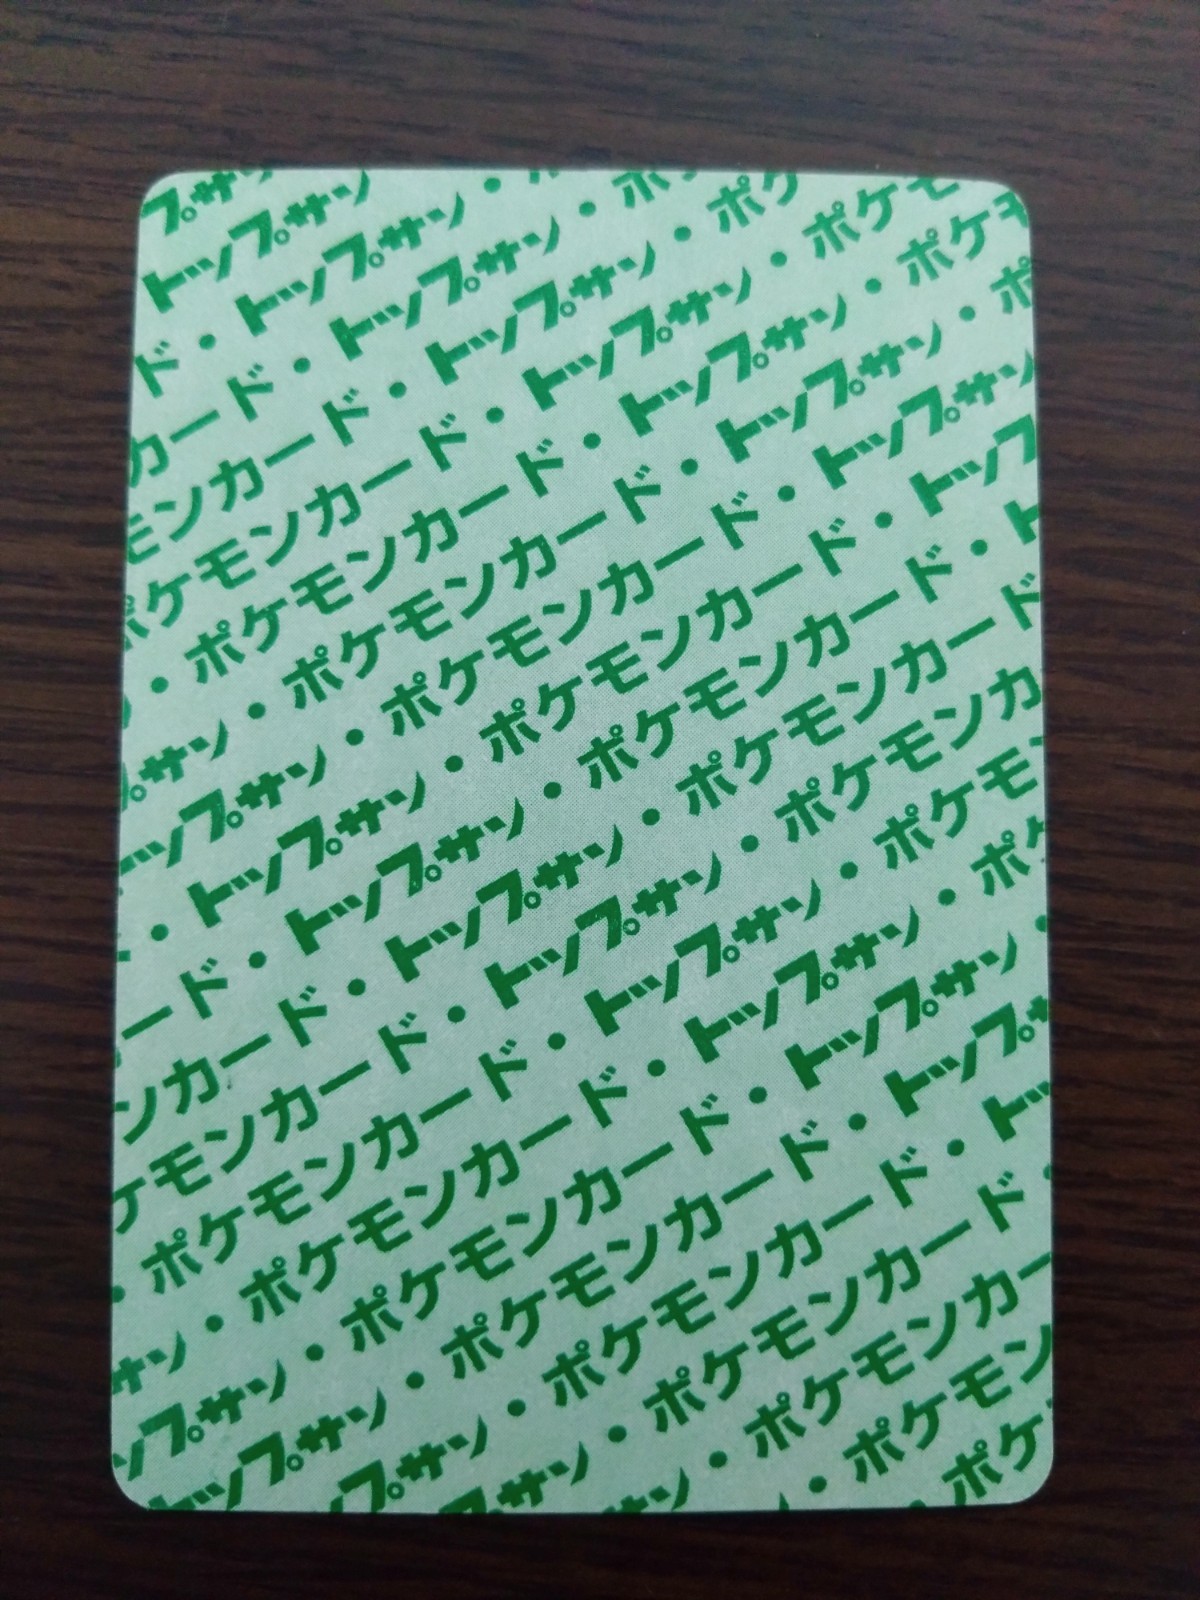 プサ
トップサン
ド・トップサン・
カード・トップサン・ポケ
モンカード・トップサン・ポケ
ポケモンカード・トップサン・ポケモ
・ポケモンカード・トップサン・ポケモ
プサン・ポケモンカード・トップサン・ポ
ップサン・ポケモンカード・トップサン
・トップサン・ポケモンカード・トップ
ード・トップサン・ポケモンカード・ト
ンカード・トップサン・ポケモンカード
ケモンカード・トップサン・ポケモンカ
・ポケモンカード・トップサン・ポケモン
サン・ポケモンカード・トップサン・ポケ
ップサン・ポケモンカード・トップサン・
トップサン・ポケモンカード・トップ
プサン・ポケモンカード・トッ
プサン・ポケモンカード・
ン・ポケモンカー
・ポケモン
ポケ